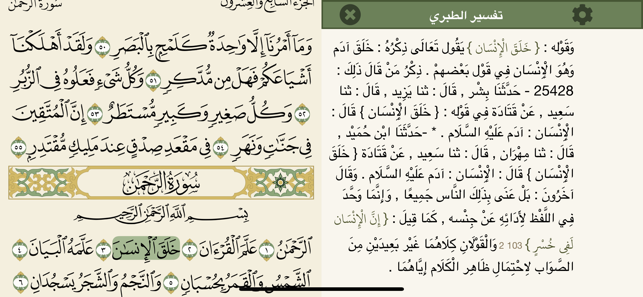 سورة الرحمن
الجزء السابع والعشرون
وَمَآ أَمْرُنَآ إِلَّا وَٰحِدَةٌ كَلَمْحٍۭ بِٱلْبَصَرِ ٥٠ وَلَقَدْ أَهْلَكْنَآ
أَشْيَاعَكُمْ فَهَلْ مِن مُّدَّكِرٍ ٥١ وَكُلُّ شَىْءٍ فَعَلُوهُ فِى ٱلزُّبُرِ
٥٢ وَكُلُّ صَغِيرٍ وَكَبِيرٍ مُّسْتَطَرٌ ٥٣ إِنَّ ٱلْمُتَّقِينَ
فِى جَنَّٰتٍ وَنَهَرٍ ٥٤ فِى مَقْعَدِ صِدْقٍ عِندَ مَلِيكٍ مُّقْتَدِرٍۭ ٥٥
سُورَةُ الرَّحْمَٰنِ
بِسْمِ ٱللَّهِ ٱلرَّحْمَٰنِ ٱلرَّحِيمِ
ٱلرَّحْمَٰنُ ١ عَلَّمَ ٱلْقُرْءَانَ ٢ خَلَقَ ٱلْإِنسَٰنَ ٣ عَلَّمَهُ ٱلْبَيَانَ ٤
ٱلشَّمْسُ وَٱلْقَمَرُ بِحُسْبَانٍ ٥ وَٱلنَّجْمُ وَٱلشَّجَرُ يَسْجُدَانِ ٦
تفسير الطبري
وَقَوْله : { خَلَقَ الْإِنْسَان } يَقُول تَعَالَى ذِكْرُهُ : خَلَقَ آدَم
وَهُوَ الْإِنْسَان فِي قَوْل بَعْضهمْ . ذِكْرُ مَنْ قَالَ ذَلِكَ :
25428 - حَدَّثَنَا بِشْر , قَالَ : ثنا يَزِيد , قَالَ : ثنا
سَعِيد , عَنْ قَتَادَة فِي قَوْله : { خَلَقَ الْإِنْسَان } قَالَ :
الْإِنْسَان : آدَم عَلَيْهِ السَّلَام . * - حَدَّثَنَا ابْن حُمَيْد ,
قَالَ : ثنا مِهْرَان , قَالَ : ثنا سَعِيد , عَنْ قَتَادَة { خَلَقَ
الْإِنْسَان } قَالَ : الْإِنْسَان : آدَم عَلَيْهِ السَّلَام . وَقَالَ
آخَرُونَ : بَلْ عَنَى بِذَلِكَ النَّاس جَمِيعًا , وَإِنَّمَا وَحَّدَ
فِي اللَّفْظ لِأَدَائِهِ عَنْ جِنْسه , كَمَا قِيلَ : { إِنَّ الْإِنْسَان
لَفِي خُسْر } 103 2 وَالْقَوْلَانِ كِلَاهُمَا غَيْر بَعِيدَيْنِ مِنَ
الصَّوَاب لِاحْتِمَالِ ظَاهِر الْكَلَام إِيَّاهُمَا .